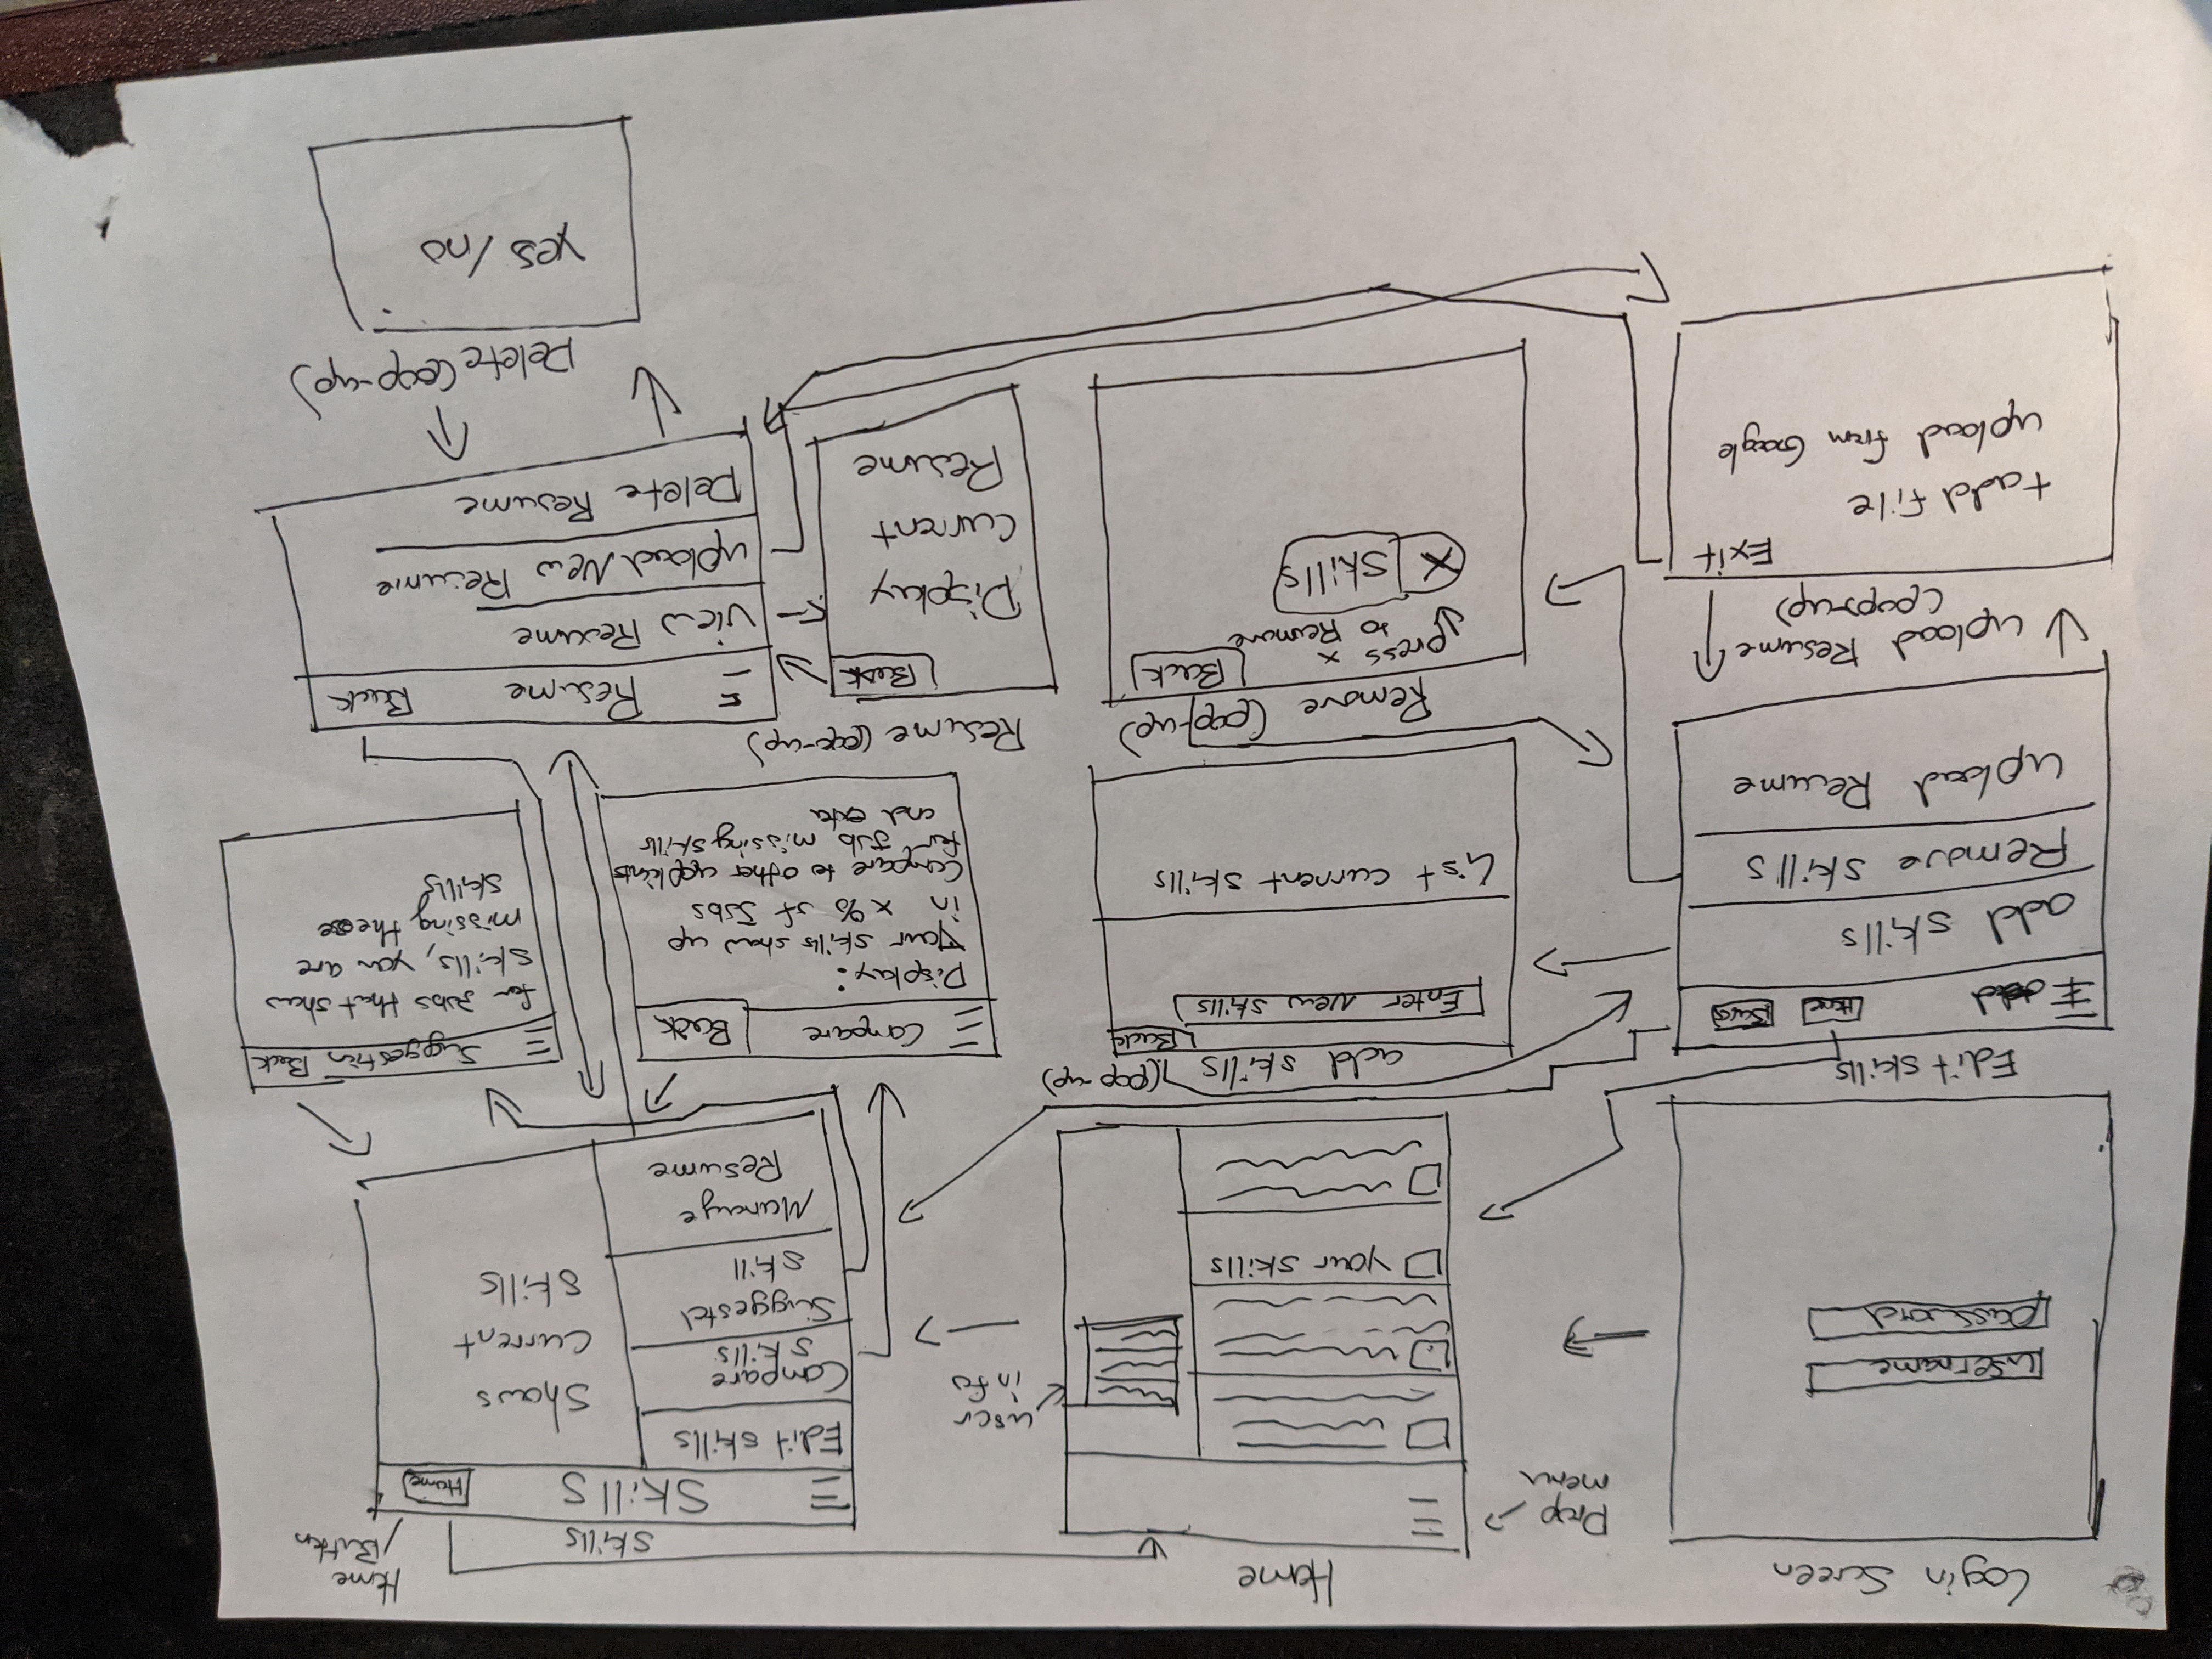 Login Screen
username
password
Home
Drop
menu
user
info
your skills
Home
Button
skills
Skills
Home
Edit skills
Compare
skills
Suggestd
skill
Manage
Resume
Shows
current
skills
Edit skills
Home
add skills
Remove skills
upload Resume
add skills (pop-up)
Back
Enter New skills
List current skills
Compare
Back
Display:
Your skills show up
in x% of Jobs
Compare to other applicants
for Job missing skills
and exta
Suggestion Back
for Jobs that show
skills, you are
missing these
skills
upload Resume
(pop-up)
Exit
+ add file
upload from Google
Remove (pop-up)
Back
press x
to Remove
X skills
Resume (pop-up)
Back
Display
Current
Resume
Resume Back
View Resume
upload New Resume
Delete Resume
Delete (pop-up)
yes/no